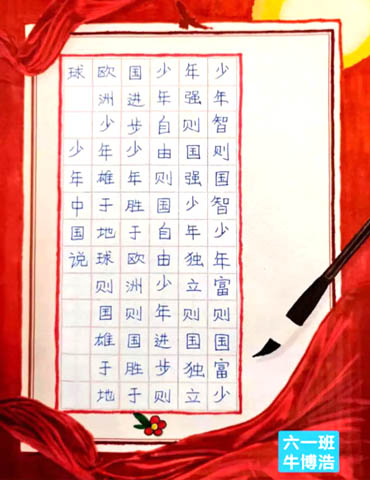 少年智则国智少年富则国富少
年强则国强少年独立则国独立
少年自由则国自由少年进步则
国进步少年胜于欧洲则国胜于
欧洲少年雄于地球则国雄于地
球 少年中国说
六一班
牛博浩